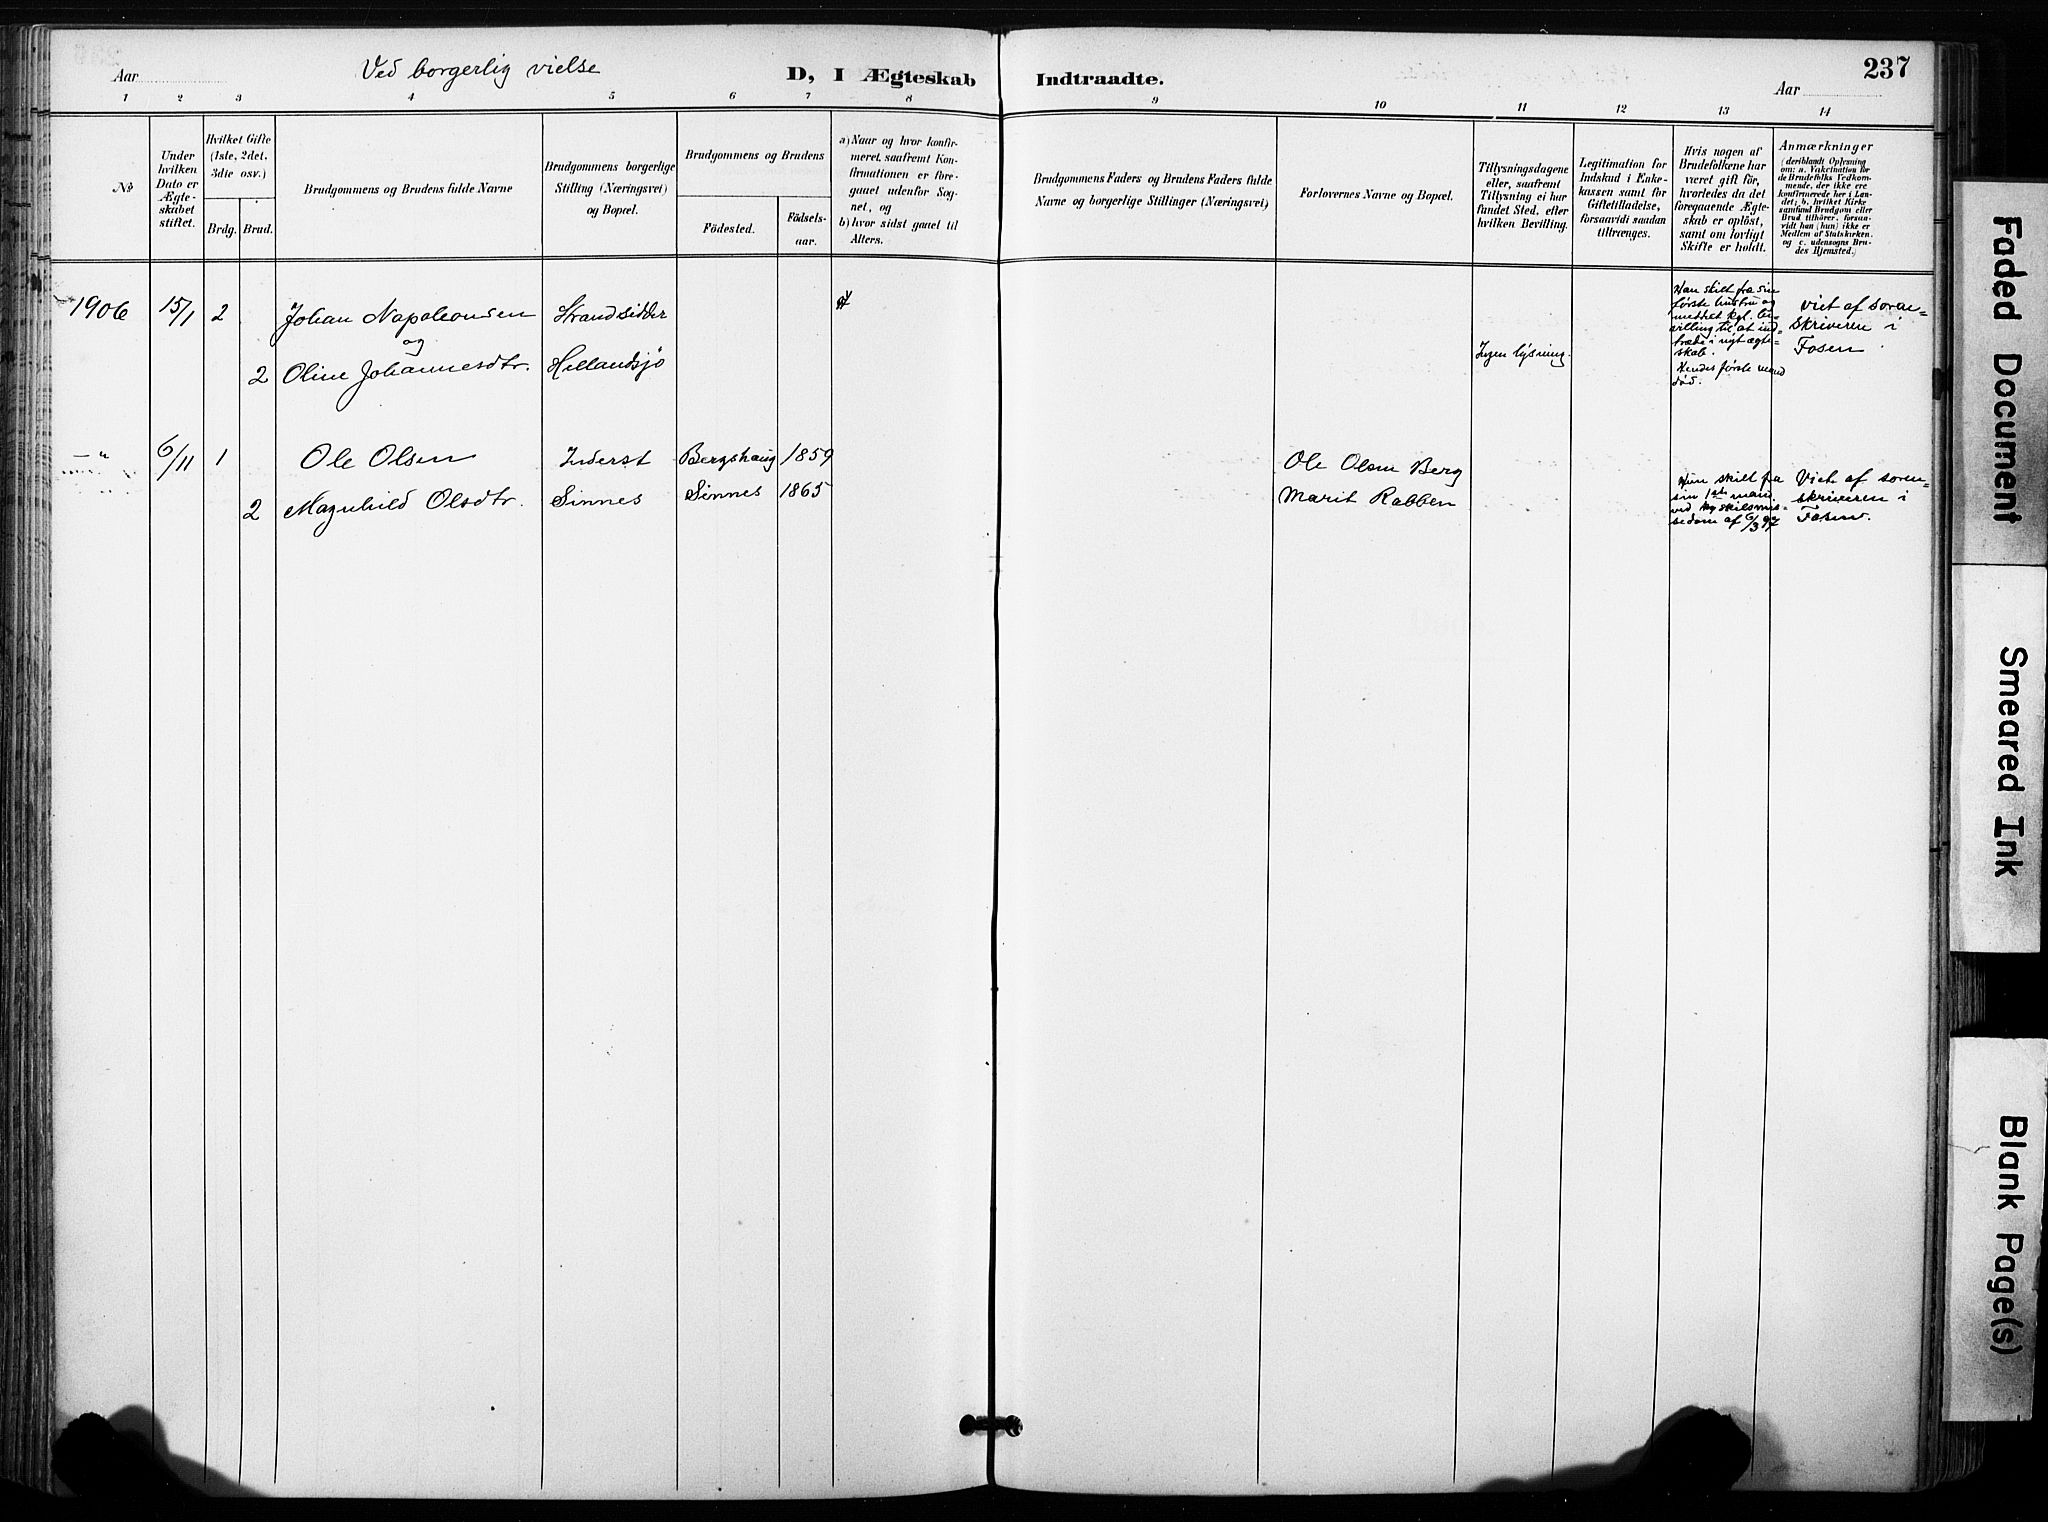 Aar
Ved borgerlig vielse
D, I Ægteskab
Indtraadte.
237
Aar
1 2 3 4 5 6 7 8 9 10 11 12 13 14
№
Under
hvilken
Dato er
Ægte-
skabet
stiftet.
Hvilket Gifte
(1ste, 2det,
3die osv.)
Brdg. Brud.
Brudgommens og Brudens fulde Navne
Brudgommens borgerlige
Stilling (Næringsvei)
og Bopæl.
Brudgommens og Brudens
Födested.
Födsels-
aar.
a) Naar og hvor konfir-
meret, saafremt Kon-
firmationen er fore-
gaaet udenfor Sog-
net, og
b) hvor sidst gaaet til
Alters.
Brudgommens Faders og Brudens Faders fulde
Navne og borgerlige Stillinger (Næringsvei)
Forlovernes Navne og Bopæl.
Tillysningsdagene
eller, saafremt
Tillysning ei har
fundet Sted, efter
hvilken Bevilling.
Legitimation for
Indskud i Enke-
kassen samt for
Giftetilladelse,
forsaavidt saadan
tiltrænges.
Hvis nogen af
Brudefolkene har
været gift för,
hvorledes da det
foregaaende Ægte-
skab er oplöst,
samt om lovligt
Skifte er holdt.
Anmærkninger
(deriblandt Oplysning
om: a. Vakcination for
de Brudefolks Vedkom-
mende, der ikke ere
konfirmerede her i Lan-
det; b. hvilket Kirke
samfund Brudgom eller
Brud tilhörer, forsaa-
vidt han (hun) ikke er
Medlem af Statskirken,
og c. udensogns Bru-
des Hjemsted.)
1906 15/1 2 Johan Napoleonsen Strandsidder
og
2 Oline Johannesdtr. Hellandsjö
Ingen lysning.
Han skilt fra sin
første hustru og
meddelt kgl. be-
villing til at ind-
træde i nyt ægte-
skab.
Hendes første mand
død.
Viet af soren-
skriveren i
Fosen.
— " 6/11 1 Ole Olsen Inderst Bergshaug 1859
2 Magnhild Olsdtr. Sinnes Sinnes 1865
Ole Olsen Berg
Marit Rabben
Hun skilt fra
sin 1ste mand
ved kg skilsmis-
sedom af 6/3 97
Viet af soren-
skriveren i
Fosen.
Faded Document
Smeared Ink
Blank Page(s)